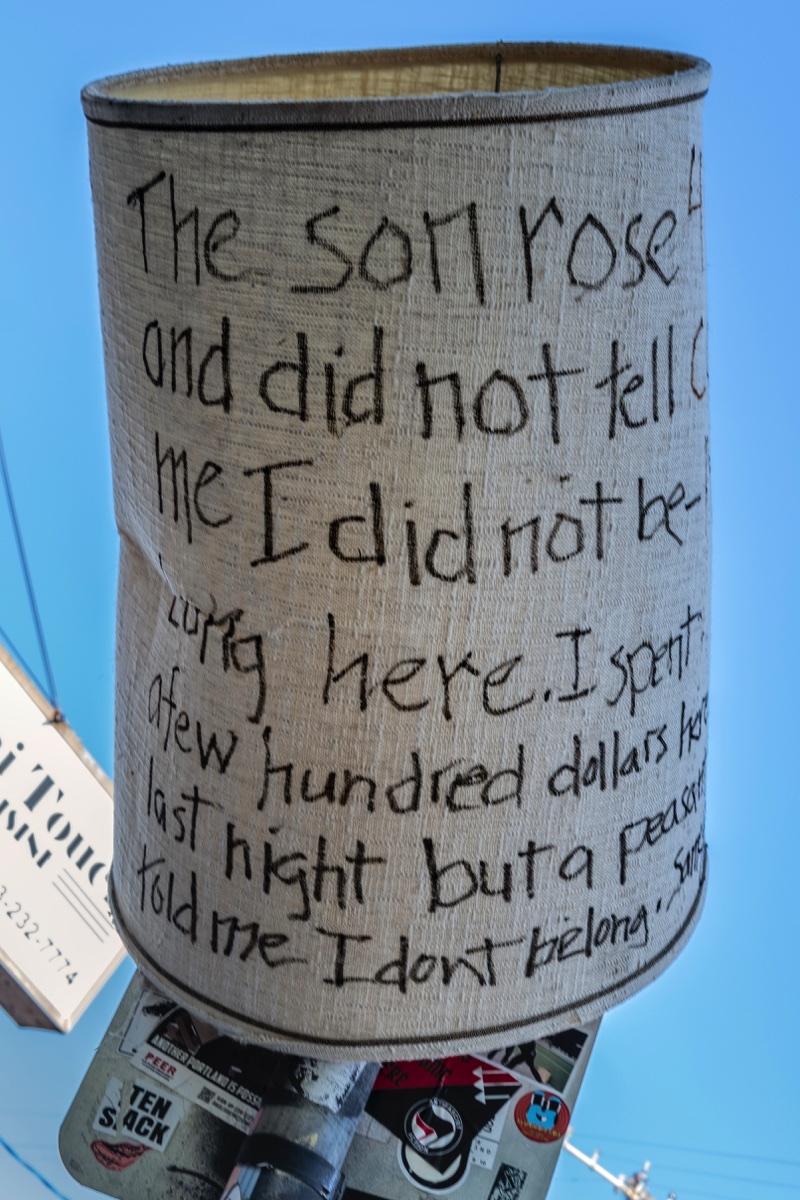 The son rose
and did not tell
me I did not be-
long here. I spent
a few hundred dollars here
last night but a peasant
told me I dont belong.
Touc
3-232-7774
ANOTHER PORTLAND IS POSS
PEER
TEN
SLACK